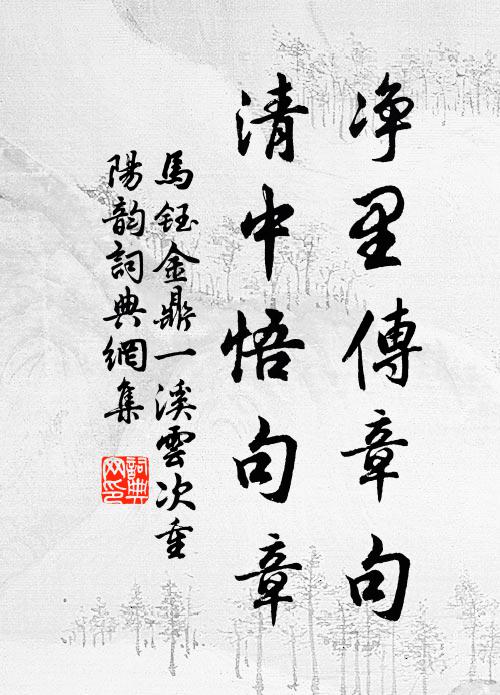 净里傳章句
清中悟句章
馬鈺金鼎一溪雲次重
陽韵詞典網集
詞典网印